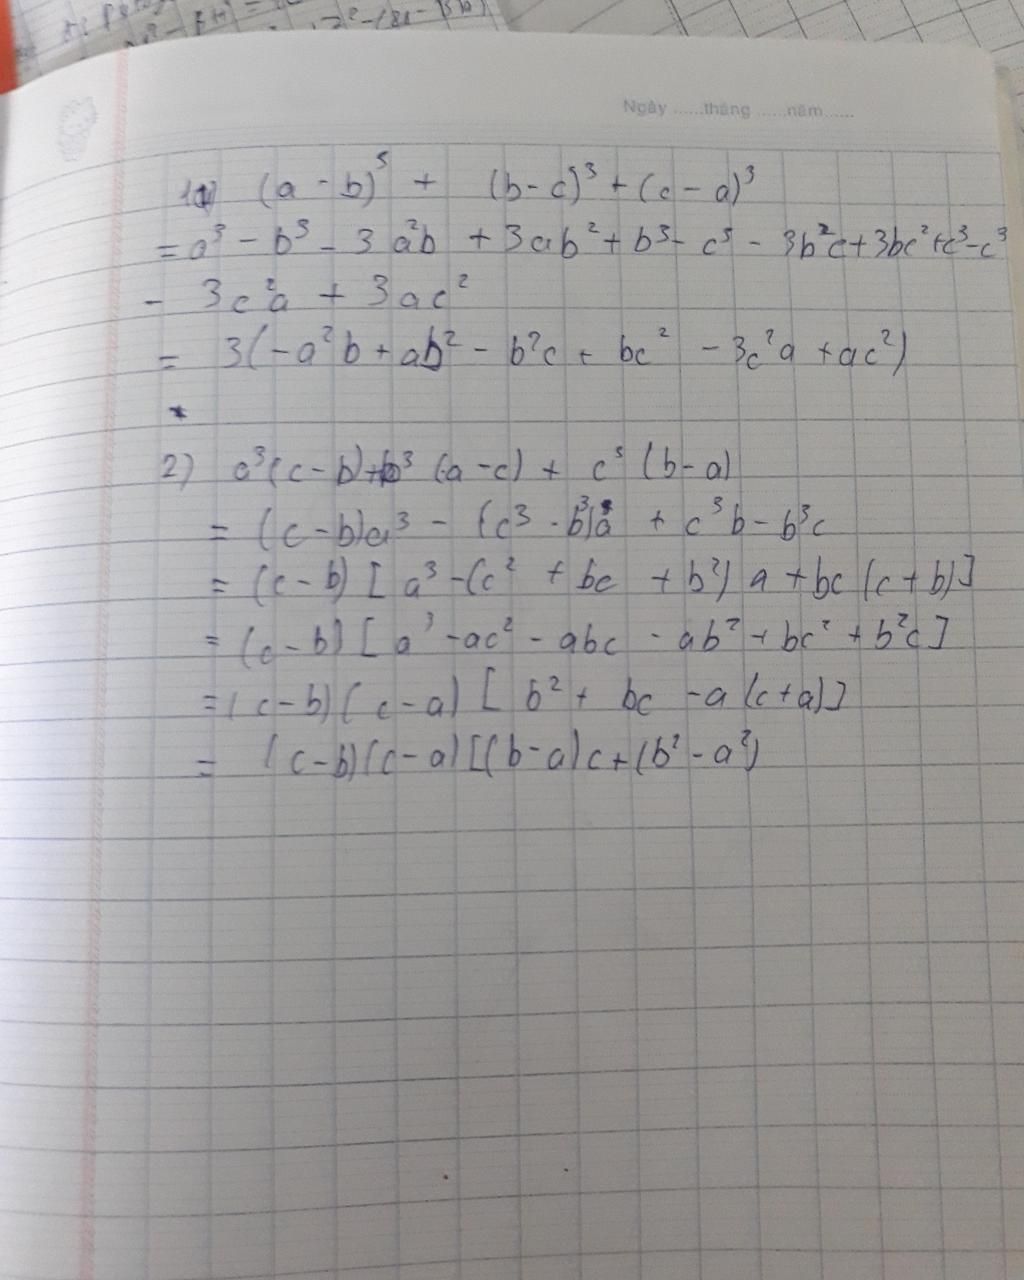 Ngày ......tháng ......năm......
1) (a - b)³ + (b - c)³ + (c - a)³
= a³ - b³ - 3a²b + 3ab² + b³ - c³ - 3b²c + 3bc² + c³ - c³
- 3c²a + 3ac²
= 3(-a²b + ab² - b²c + bc² - 3c²a + ac²)
*
2) a³(c - b) + b³(a - c) + c³(b - a)
= (c - b)a³ - (c³ - b³)a + c³b - b³c
= (c - b)[a³ - (c² + bc + b²)a + bc(c + b)]
= (c - b)[a³ - ac² - abc - ab² + bc² + b²c]
= (c - b)(c - a)[b² + bc - a(c + a)]
= (c - b)(c - a)[(b - a)c + (b² - a²)